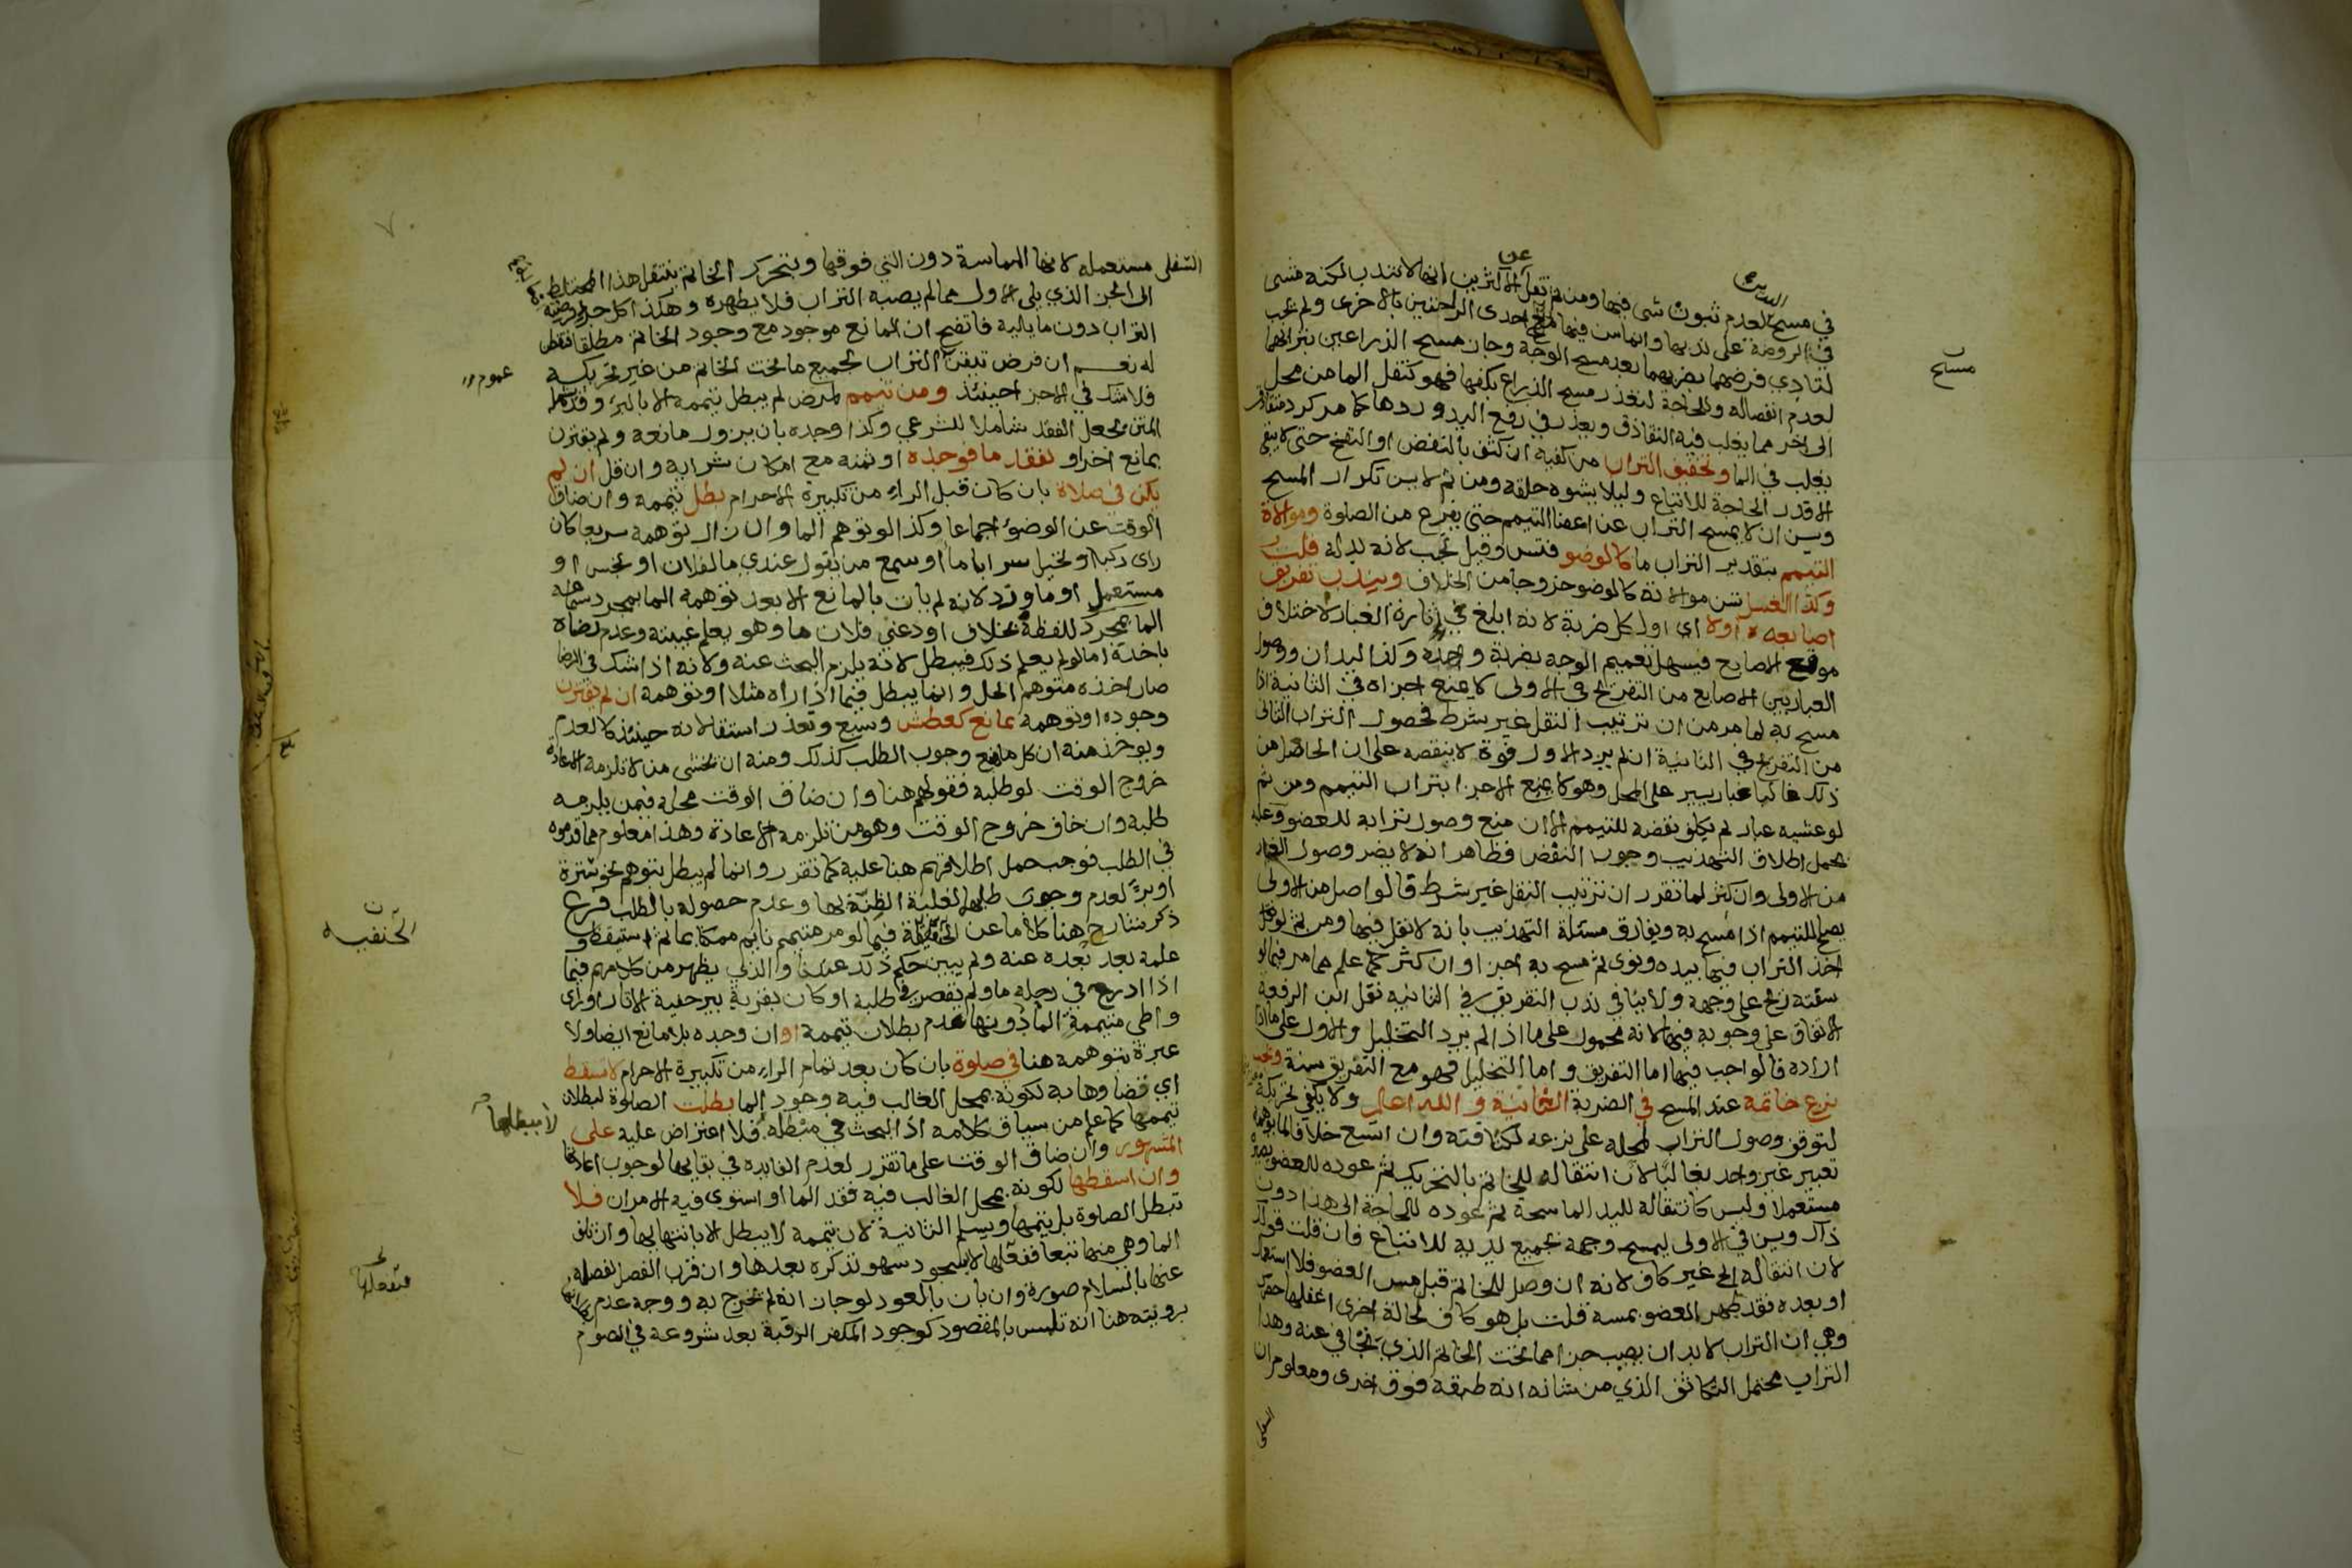 في مسح لعدم ثبوت شي فيها ومن ثم نقل عن الاكثرين انها لا تندب لكنه مشى
في الروضة على ندبها وانما سن فيها مسح احدى الراحتين بالاخرى ولم يجب
لتادي فرضهما بضربهما بعد مسح الوجه وجاز مسح الذراعين بترابهما
لعدم انفصاله وللحاجة لتعذر مسح الذراع بكفها فهو كنقل الما من محل
الى اخر مما يغلب فيه التقاذف ويعذر في رفع اليد وردها كما مر كرد متقاذف
يغلب في الما وتخفيف التراب من كفيه ان كثف بالنفض او النفخ حتى لا يبقى
الا قدر الحاجة للاتباع وليلا يشوه خلقه ومن ثم لا يسن تكرار المسح
ويسن ان لا يمسح التراب عن اعضا التيمم حتى يفرغ من الصلوة وموالاة
التيمم بتقدير التراب ما كالوضو فتسن وقيل تجب لانه بدله قلت
وكذا الغسل تسن موالاته كالوضو خروجا من الخلاف ويندب تفريق
اصابعه اولا اي اول كل ضربة لانه ابلغ في اثارة الغبار لاختلاف
موقع الاصابع فيسهل تعميم الوجه بضربة واحدة وكذا اليدان ووصول
الغبار بين الاصابع من التفريج في الاولى لا يمنع اجزاه في الثانية اذا
مسح به لما مر من ان ترتيب النقل غير شرط فحصول التراب الثاني
من التفريج في الثانية ان لم يزد الاول قوة لا ينقصه على ان الحاصل من
ذلك غالبا غبار يسير على المحل وهو لا يمنع الاجزا بتراب التيمم ومن ثم
لو غشيه غبار لم يكلف نفضه للتيمم الا ان منع وصول ترابه للعضو وعليه
يحمل اطلاق التهذيب وجوب النفض فظاهر انه لا يضر وصول الغبار
من الاولى وان كثر لما تقرر ان ترتيب النقل غير شرط فالواصل من الاولى
يصلح للتيمم اذا مسح به ويفارق مسئلة التهذيب بانه لا نقل فيها ومن ثم لو نقل
اخذ التراب فيها بيده ونوى ثم مسح به اجزا وان كثر كما علم مما مر فيما لو
سفته ريح على وجهه ولا ينافي ندب التفريق في الثانيه نقل ابن الرفعة
الاتفاق على وجوبه فيها لانه محمول على ما اذا لم يرد التخليل والاول على ما اذا
اراده فالواجب فيها اما التفريق واما التخليل فهو مع التفريق سنة ويجب
نزع خاتمه عند المسح في الضربة الثانية والله اعلم ولا يكفي تحريكه
لتوقف وصول التراب لمحله على نزعه لكثافته وان اتسع خلافا لما يوهمه
تعبير غير واحد بغالبا لان انتقاله للخاتم بالتحريك ثم عوده للعضو يصيره
مستعملا وليس كانتقاله لليد الماسحة ثم عوده للحاجة الى هذا دون
ذاك ويسن في الاولى ليمسح وجهه بجميع يديه للاتباع فان قلت قولك
لان انتقاله الخ غير كاف لانه ان وصل للخاتم قبل مس العضو فلا استعمال
او بعده فقد طهر العضو بمسه قلت بل هو كاف لحالة اخرى اغفلها
وهي ان التراب لا بد ان يصيب جزا مما تحت الخاتم الذي تجافي عنه وهذا
التراب محتمل التكاثف الذي من شانه انه طبقة فوق اخرى ومعلوم ان
السفلى
مسح
السفلى مستعمله لانها الماسة دون التي فوقها وبتحرك الخاتم ينتقل هذا المختلط
الى الجزء الذي يلي الاول مما لم يصبه التراب فلا يطهره وهكذا كل جزء
التراب دون ما يليه فاتضح ان المانع موجود مع وجود الخاتم مطلقا
له نعم ان فرض تيقن التراب لجميع ما تحت الخاتم من غير تحريكه
فلا شك في الاجزا حينئذ ومن تيمم لمرض لم يبطل تيممه الا بالبرء وقد
المتن بجعل الفقد شاملا للشرعي وكذا وجده بان يزول مانعه ولم يقترن
بمانع اخر او لفقد ما فوجده او ثمنه مع امكان شرايه وان قل ان لم
يكن في صلاة بان كان قبل الراء من تكبيرة الاحرام بطل تيممه وان ضاق
الوقت عن الوضوء اجماعا وكذا لو توهم الما وان زال توهمه سريعا كان
راى ركبا او تخيل سرابا ما او سمع من يقول عندي ما لفلان او نجس او
مستعمل او ما ورد لانه لم يات بالمانع الا بعد توهمه الما بمجرد سماعه
الما بمجرد للفظه بخلاف اودعني فلان ما وهو يعلم غيبته وعدم رضاه
باخذه اما لو لم يعلم ذلك فيبطل لانه يلزمه البحث عنه ولانه اذا شك في الرضا
صار اخذه متوهم الحل وانما يبطل فيما اذا راه مثلا او توهمه ان لم يقترن
وجوده او توهمه بمانع كعطش وسبع وتعذر استقا لانه حينئذ كالعدم
ويوخذ منه ان كل ما منع وجوب الطلب كذلك ومنه ان يخشى من لا تلزمه الاعادة
خروج الوقت لو طلبه فقولهم هنا وان ضاق الوقت محله فيمن يلزمه
طلبه وان خاف خروج الوقت وهو من تلزمه الاعادة وهذا معلوم مما قدموه
في الطلب فوجب حمل اطلاقهم هنا عليه كما تقرر وانما لم يبطل بتوهم نحو سترة
او برء لعدم وجوب طلبها لغلبة الظنة بها وعدم حصوله بالطلب فرع
ذكر شارح هنا كلاما عن الحنفية فيما لو مر متيمم نايم ممكا بما ثم استيقظ و
علمه بعد بعده عنه ولم يبين حكم ذلك عندنا والذي يظهر من كلامهم فيما
اذا ادرج في رحله ما ولم يقصر في طلبه او كان بقربه بير خفية الاثار او راى
واطي متيممة الما دونها عدم بطلان تيممه او ان وجده بلا مانع ايضا ولا
عبرة بتوهمه هنا في صلوة بان كان بعد تمام الراء من تكبيرة الاحرام لا تسقط
اي قضاوها به لكونه بمحل الغالب فيه وجود الما بطلت الصلوة لبطلان
تيممها كما علم من سياق كلامه اذ البحث في مبطله فلا اعتراض عليه على
المشهور وان ضاق الوقت على ما تقرر لعدم الفايده في بقايها لوجوب اعادتها
وان اسقطها لكونه بمحل الغالب فيه فقد الما او استوى فيه الامران فلا
تبطل الصلوة بل يتمها ويسلم الثانية لان تيممه لا يبطل الا بانتهايها وان تلف
الما وهي منها تبعا ففعلها لا لسجود سهو تذكره بعدها وان قرب الفصل لفصله
عنها بالسلام صورة وان بان بالعود لو جاز انه لم يخرج به ووجه عدم
برويته هنا انه تلبس بالمقصود كوجود المكفر الرقبة بعد شروعه في الصوم
عموم
الحنفيه
لا يبطلها